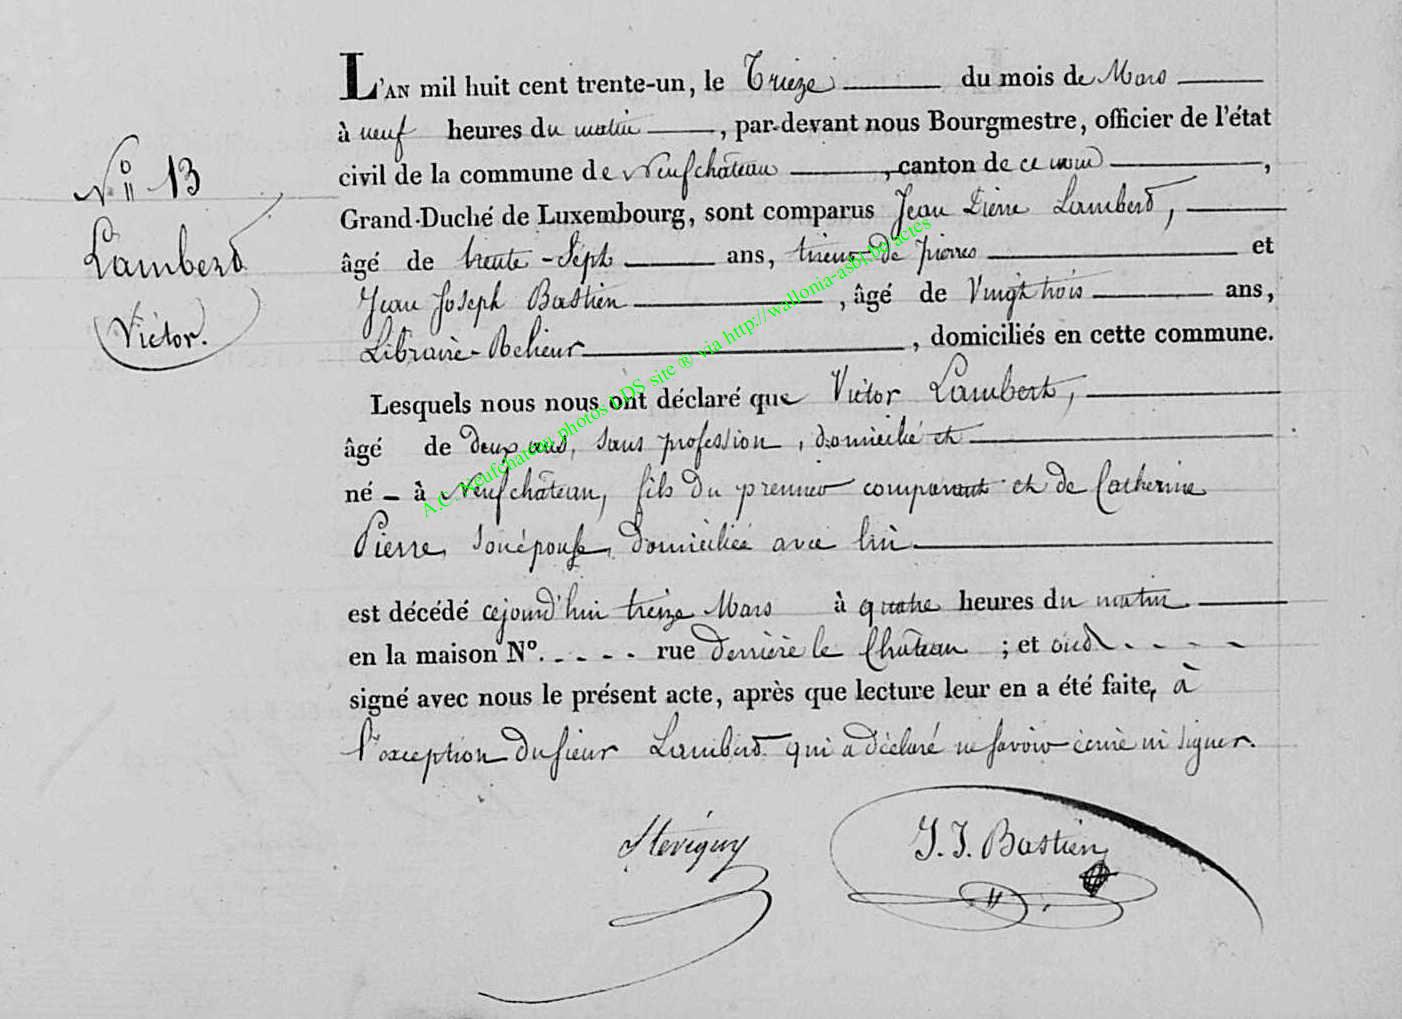 L'AN mil huit cent trente-un, le Treize du mois de Mars
à neuf heures du matin, par-devant nous Bourgmestre, officier de l'état
civil de la commune de Neufchâteau, canton de ce nom,
Grand-Duché de Luxembourg, sont comparus Jean Pierre Lambert,
âgé de trente-Sept ans, tireur de pierres et
Jean Joseph Bastien, âgé de Vingt trois ans,
Libraire-Relieur, domiciliés en cette commune.
N° 13
Lambert
Victor.
Lesquels nous nous ont déclaré que Victor Lambert,
âgé de deux ans, sans profession, domicilié et
né - à Neufchâteau, fils du premier comparant et de Catherine
Pierre, son épouse, domiciliée avec lui
est décédé cejourd'hui treize Mars à quatre heures du matin
en la maison N°. - - - - rue derrière le Château ; et ont - - - -
signé avec nous le présent acte, après que lecture leur en a été faite, à
l'exception du sieur Lambert qui a déclaré ne savoir écrire ni signer.
J. J. Bastien
A.C. Neufchateau photos LDS site ® via http://wallonia-asbl.be/actes